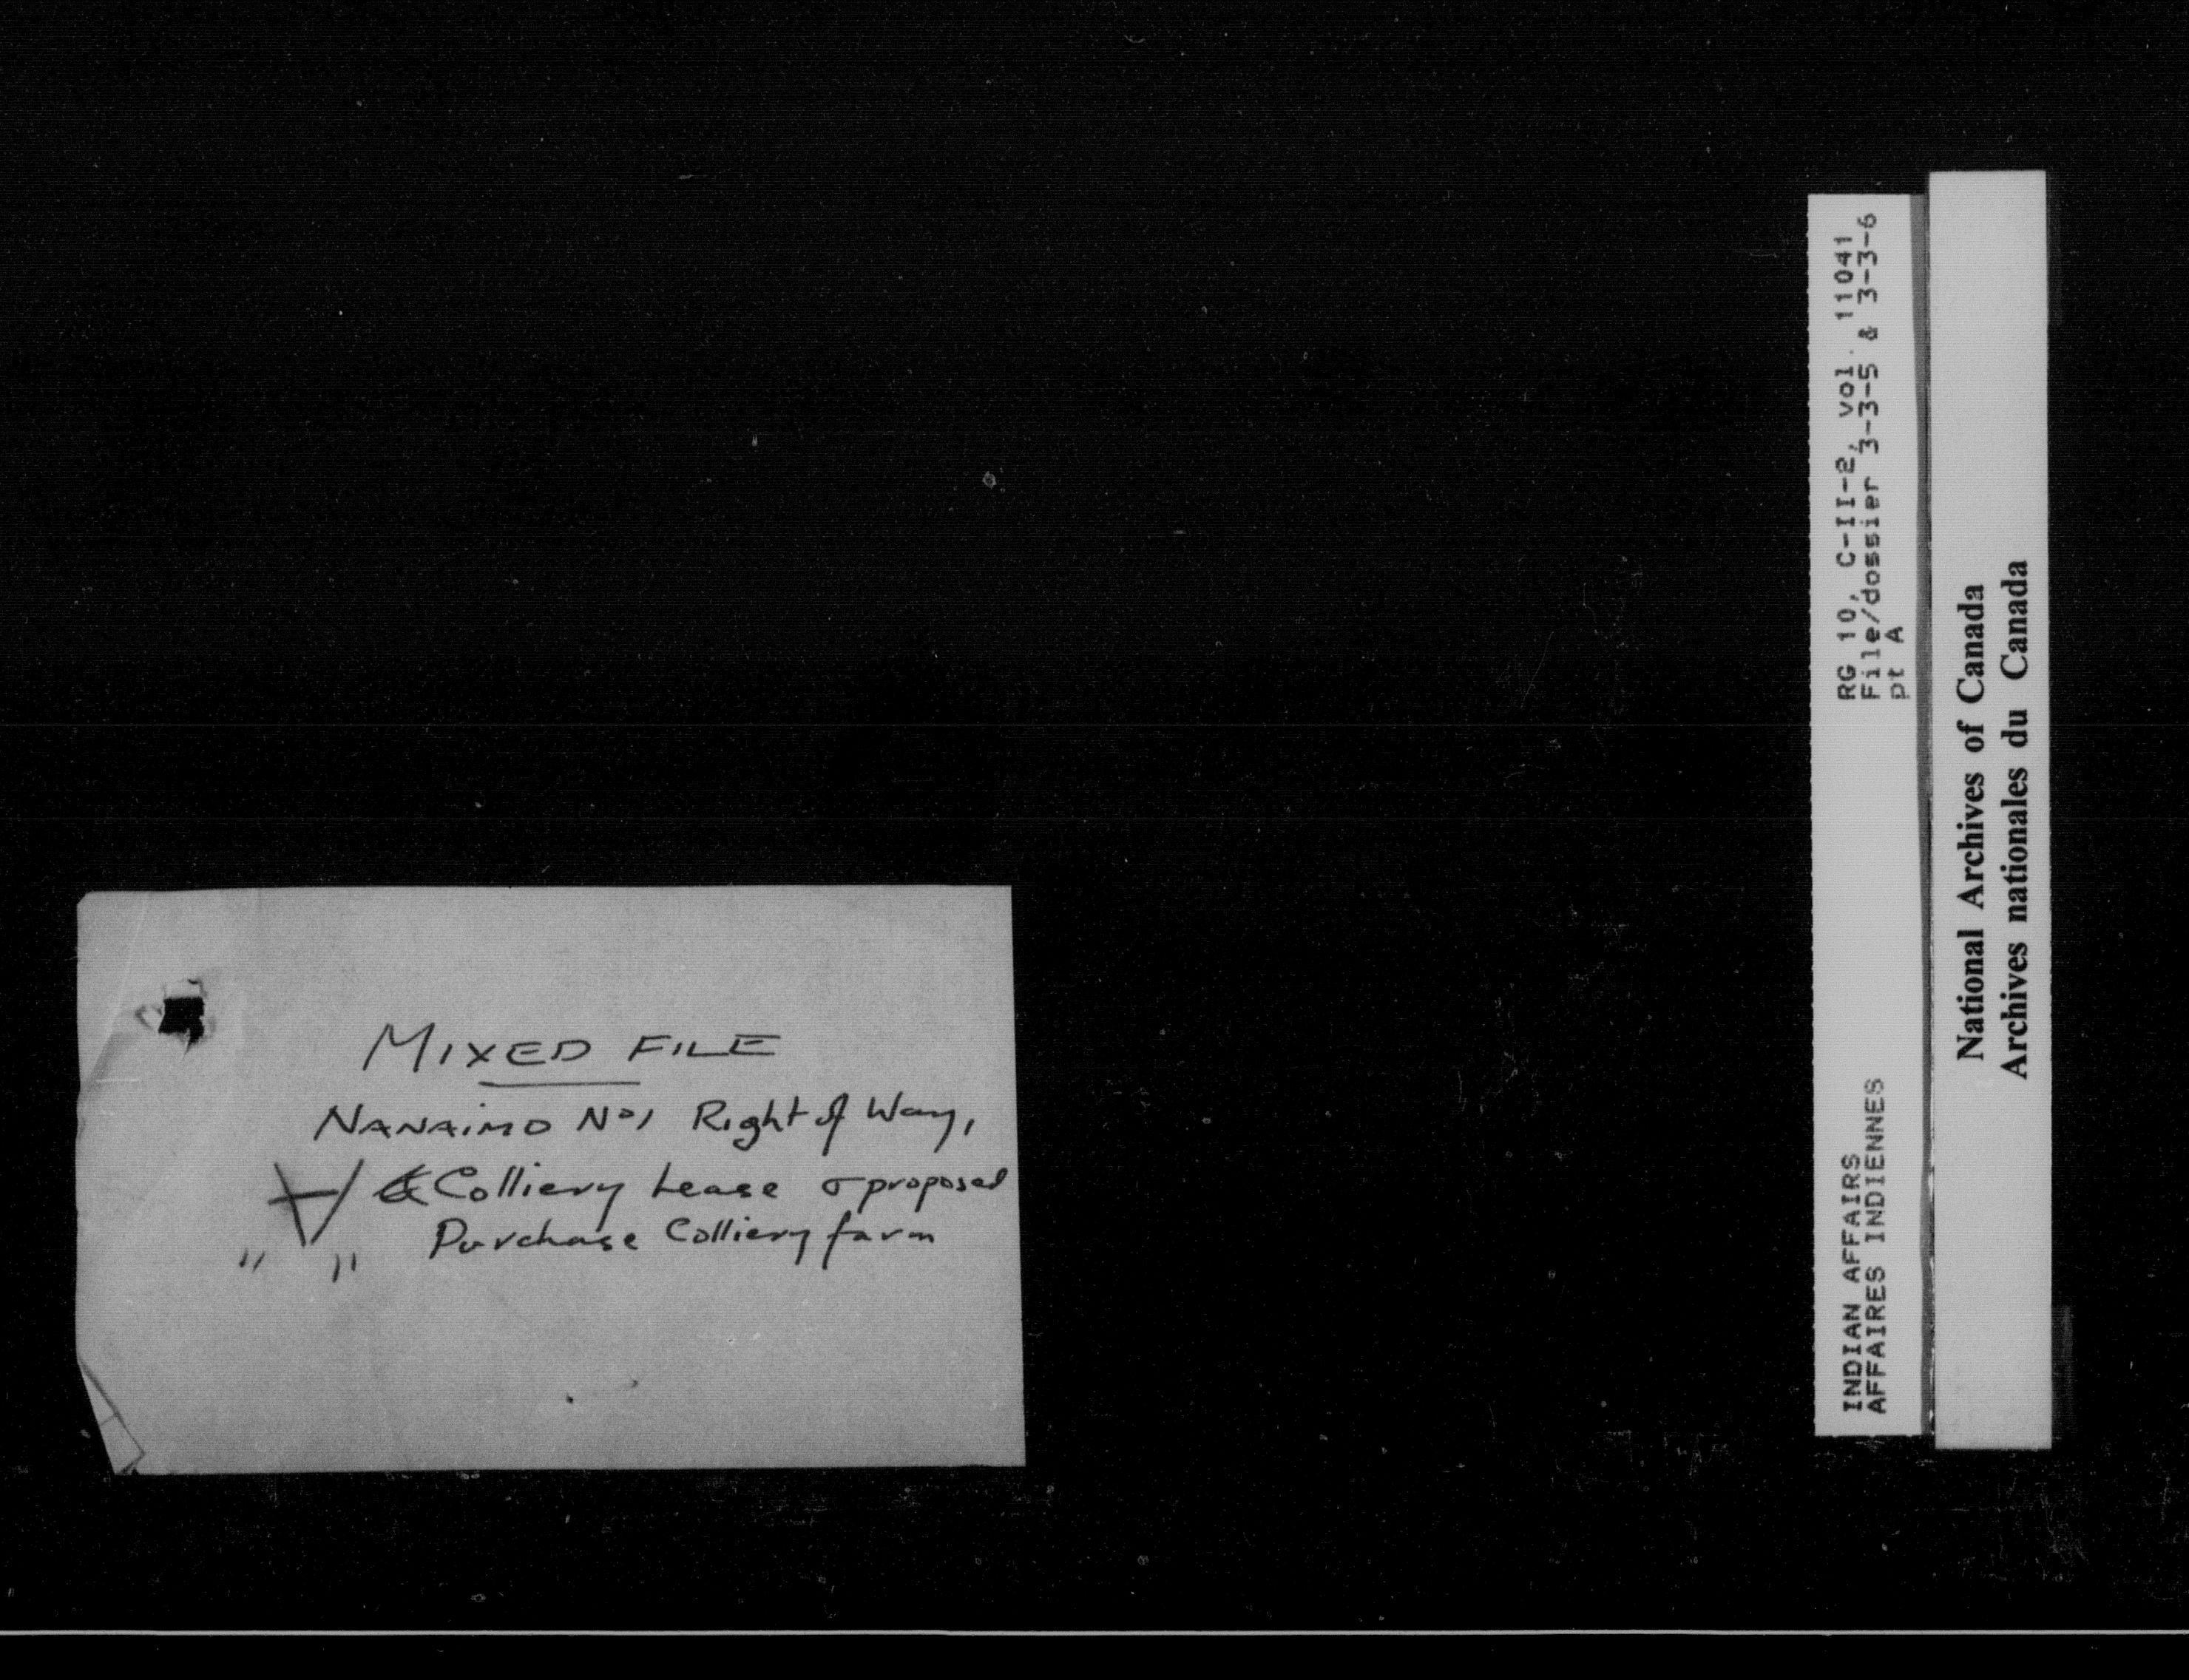 MIXED FILE
NANAIMO No 1 Right of Way,
& Colliery Lease & proposed
Purchase Colliery farm
" "
INDIAN AFFAIRS
AFFAIRES INDIENNES
RG 10, C-II-2, vol. 11041
File/dossier 3-3-5 & 3-3-6
pt A
National Archives of Canada
Archives nationales du Canada